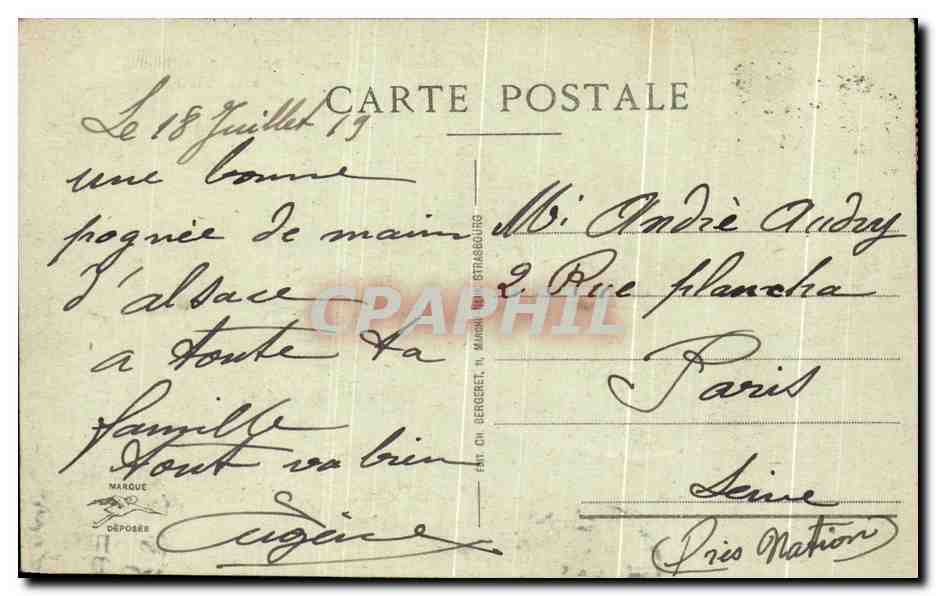 CARTE POSTALE
Le 18 Juillet 19
une bonne
pognée de main
d'alsace
a toute ta
famille
tout va bien
Eugène
MARQUE
DÉPOSÉE
EDIT. CH. BERGERET, 11, MARCHÉ NEUF STRASBOURG
Mr André Audry
2 Rue plancha
Paris
Seine
(Près Nation)
CPAPHIL